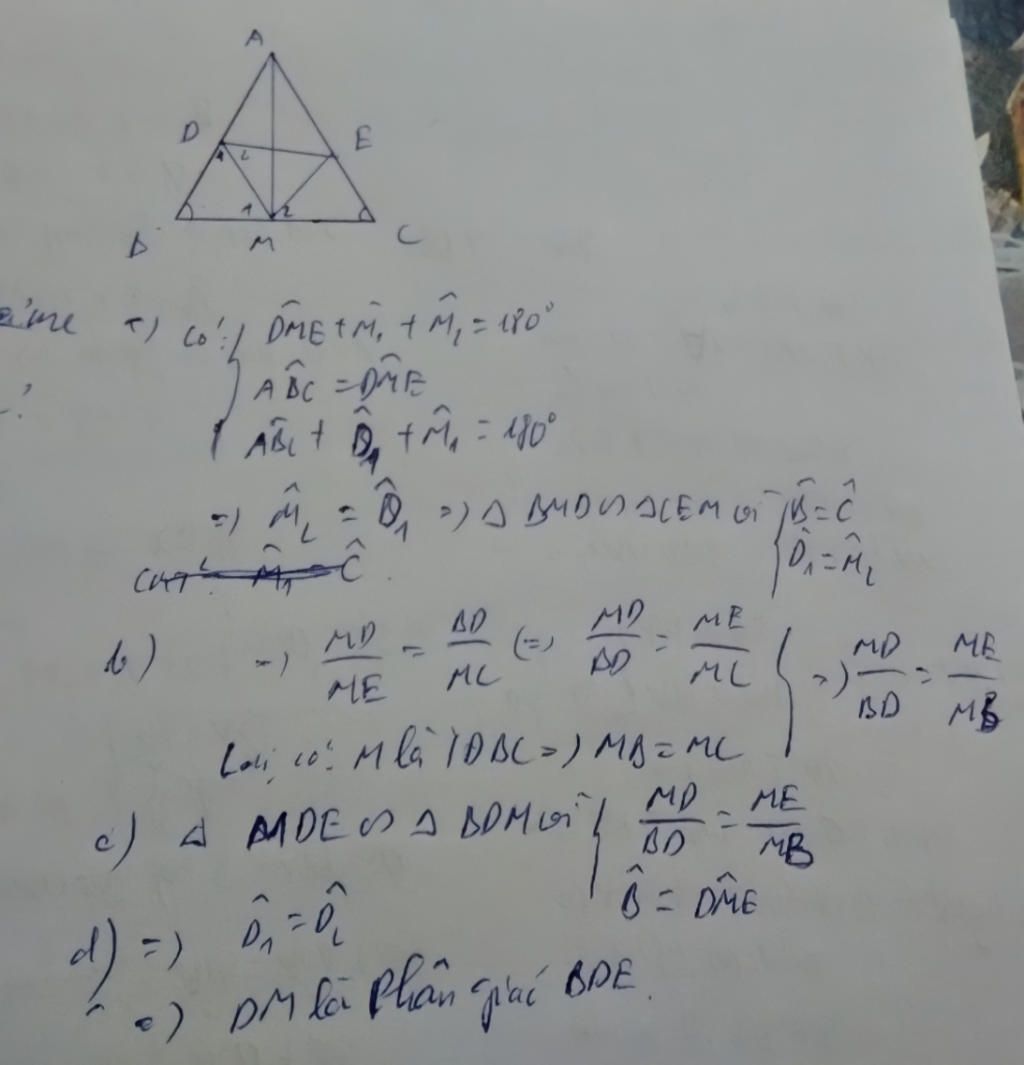 A
D E
1 2 1 2
B M C
a) Có: { DM̂E + M̂₁ + M̂₂ = 180°
AB̂C = DM̂E
AB̂C + D̂₁ + M̂₁ = 180°
=> M̂₂ = D̂₁ => Δ BMD ∽ ΔCEM vì { B̂ = Ĉ
D̂₁ = M̂₂
b) => MD/ME = BD/MC (=> MD/BD = ME/MC } => MD/BD = ME/MB
Lại có: M là TĐ BC => MB = MC
c) Δ MDE ∽ Δ BDM vì { MD/BD = ME/MB
B̂ = DM̂E
d) => D̂₁ = D̂₂
e) DM là Phân giác BDE.